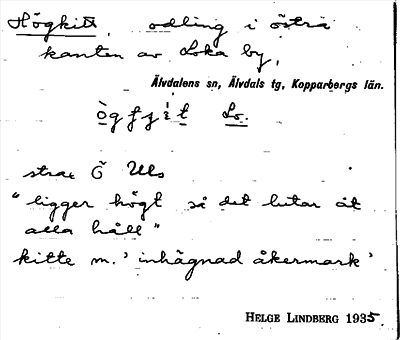 Högkitt, odling i östra
kanten av Loka by,
Älvdalens sn, Älvdals tg, Kopparbergs län.
Lo.
strax Ö Uls
"ligger högt så det lutar åt
alla håll"
kitte m. 'inhägnad åkermark'
HELGE LINDBERG 1935.